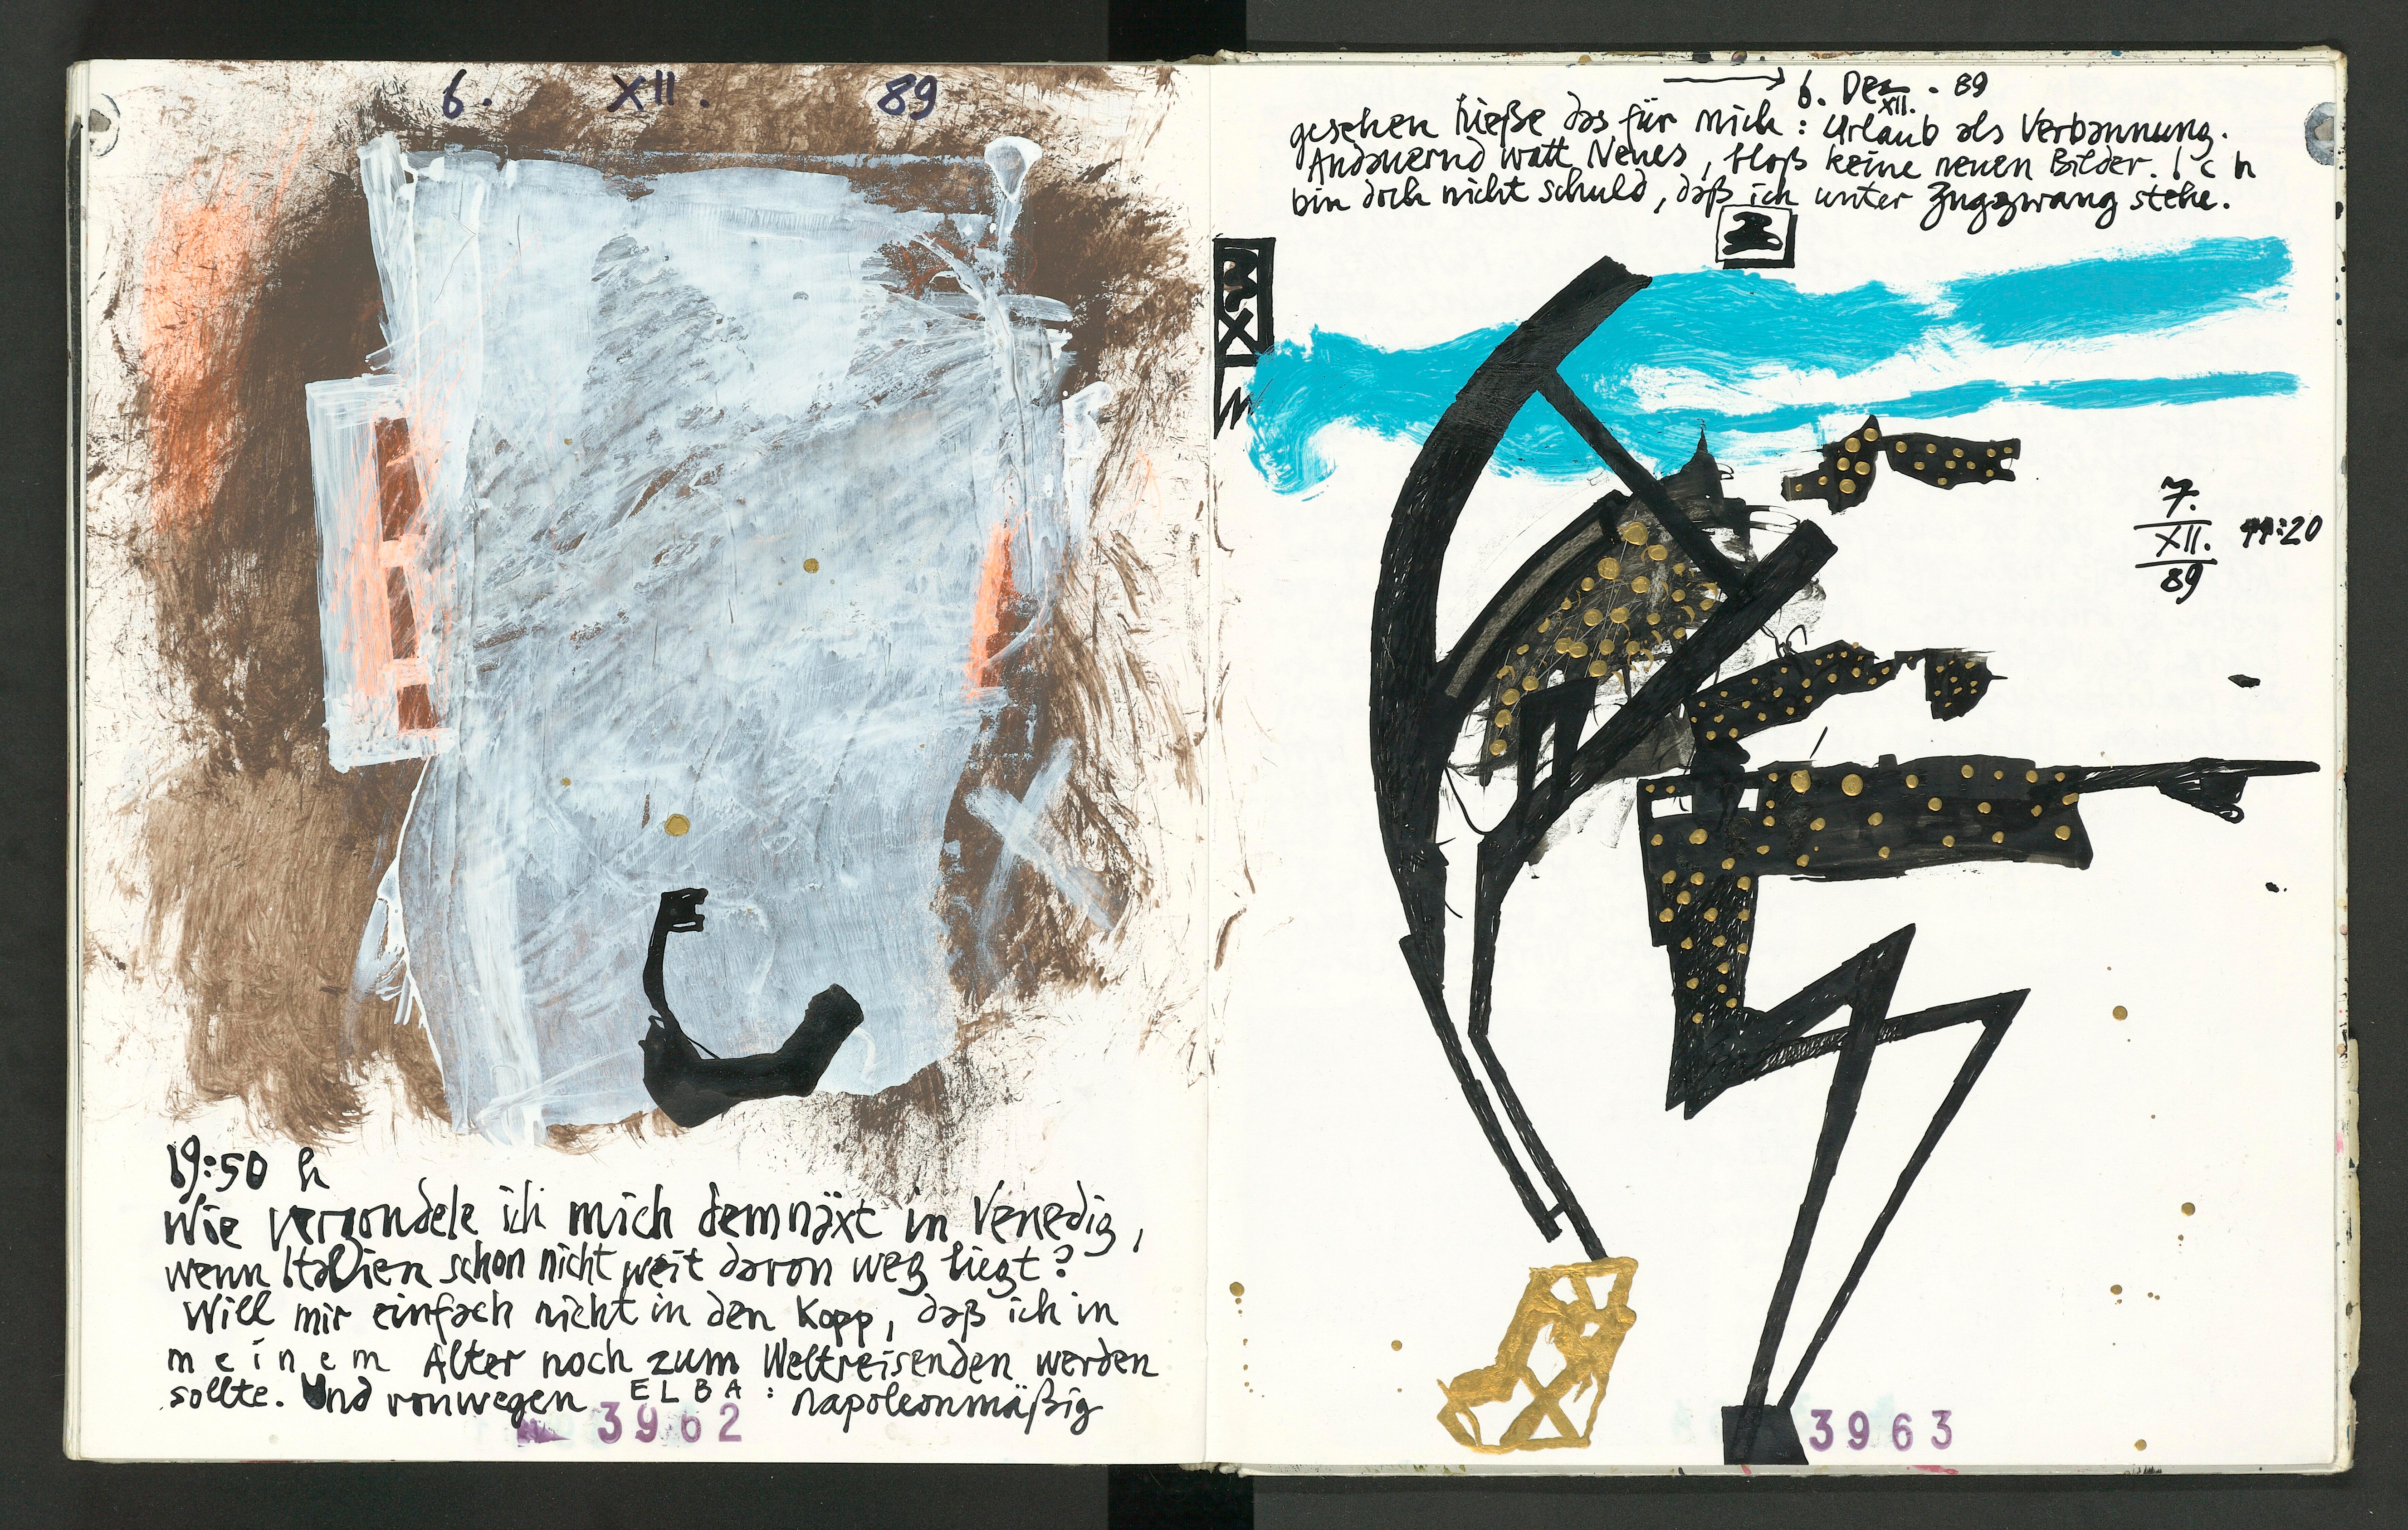 6. XII. 89
19:50 h
Wie vergondele ich mich demnäxt in Venedig,
wenn Italien schon nicht weit davon weg liegt?
Will mir einfach nicht in den Kopp, daß ich in
meinem Alter noch zum Weltreisenden werden
sollte. Und vonwegen ELBA: napoleonmäßig
3962
6. Dez. - 89
XII.
gesehen hieße das für mich: Urlaub als Verbannung.
Andauernd watt Neues, bloß keine neuen Bilder. Ich
bin doch nicht schuld, daß ich unter Zugzwang stehe.
2
7.
XII. 11:20
89
3963